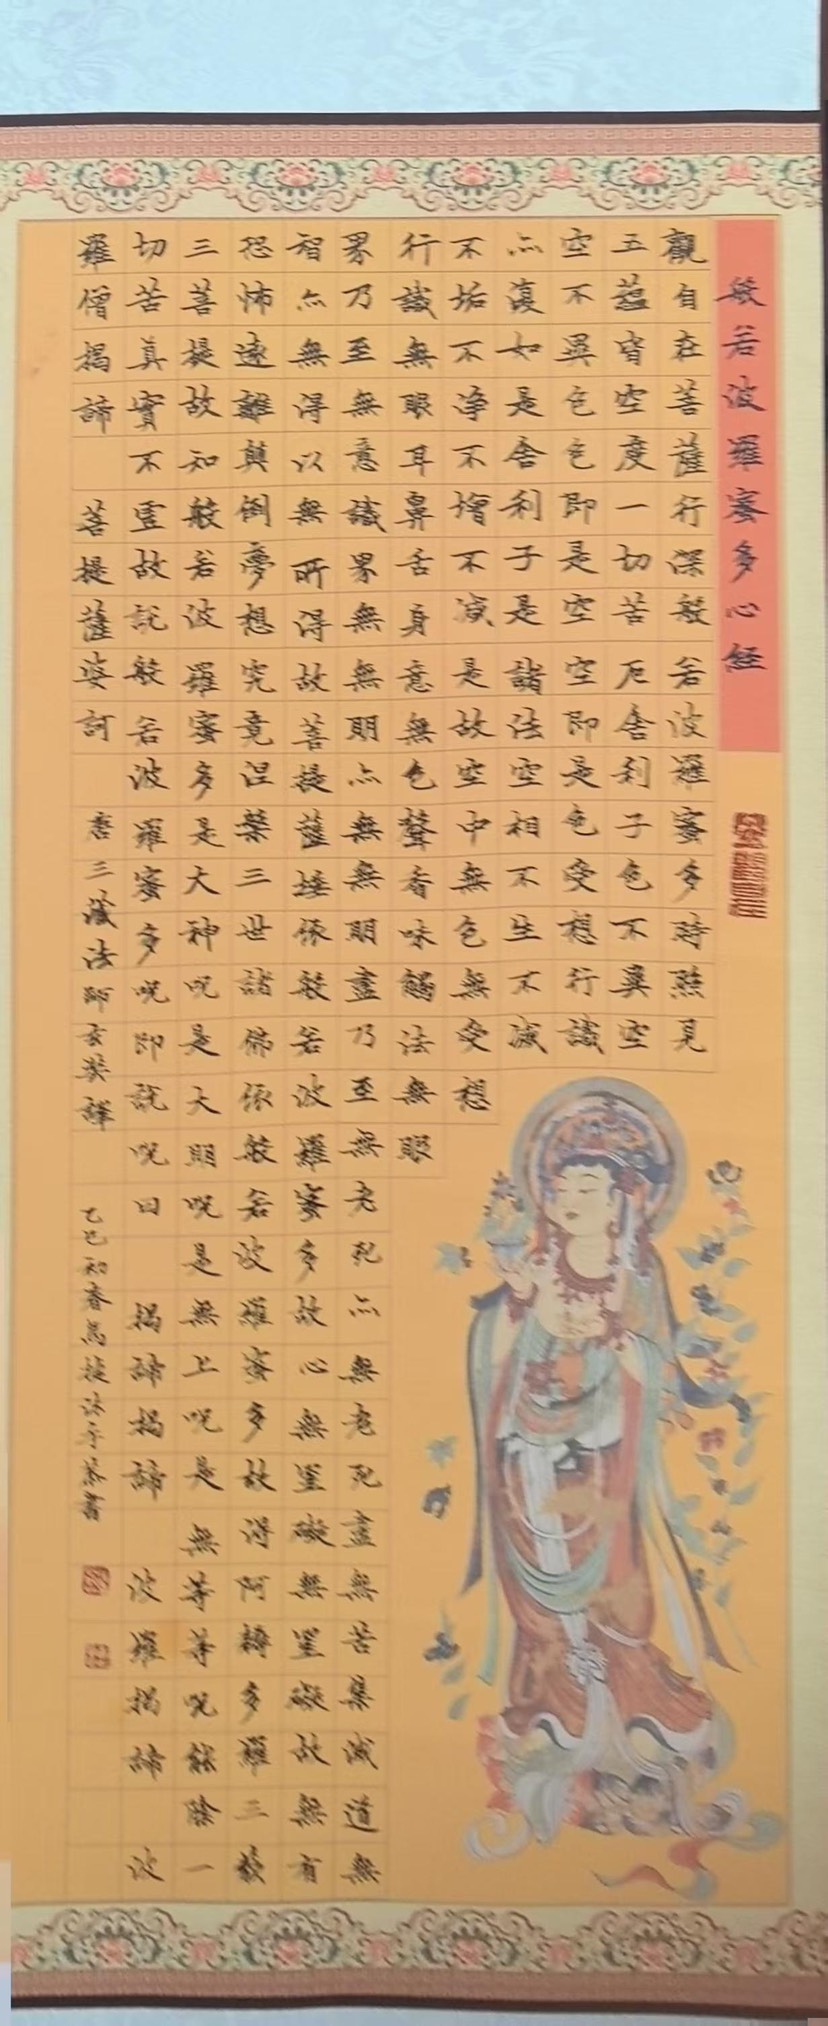 般若波羅蜜多心經
觀自在菩薩行深般若波羅蜜多時照見
五蘊皆空度一切苦厄舍利子色不異空
空不異色色即是空空即是色受想行識
亦復如是舍利子是諸法空相不生不滅
不垢不淨不增不減是故空中無色無受想
行識無眼耳鼻舌身意無色聲香味觸法無眼
界乃至無意識界無無明亦無無明盡乃至無老死亦無老死盡無苦集滅道無
智亦無得以無所得故菩提薩埵依般若波羅蜜多故心無罣礙無罣礙故無有
恐怖遠離顛倒夢想究竟涅槃三世諸佛依般若波羅蜜多故得阿耨多羅三藐
三菩提故知般若波羅蜜多是大神呪是大明呪是無上呪是無等等呪能除一
切苦真實不虛故說般若波羅蜜多呪即說呪曰 揭諦揭諦 波羅揭諦 波
羅僧揭諦 菩提薩婆訶 唐三藏法師玄奘譯 乙巳初春 沐手恭書